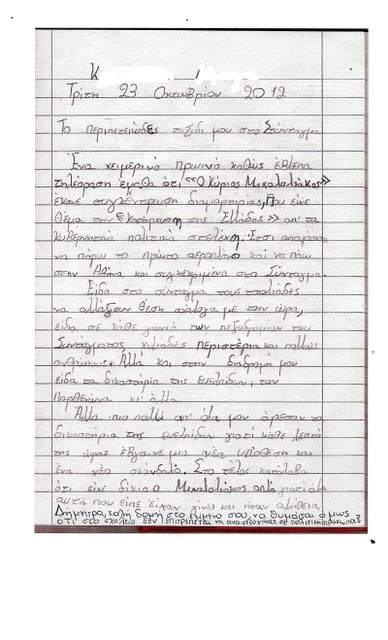 Κ
Τρίτη 23 Οκτωβρίου 2012
Το περιπετειώδες ταξίδι μου στο Σύνταγμα
Ένα χειμερινό πρωινό καθώς έβλεπα
τηλεόραση έμαθα ότι «Ο Κύριος Μιχαλολιάκος»
έκανε συγκέντρωση διαμαρτυρίας, που είχε
θέμα την «Κατάρρευση της Ελλάδος» απ' τα
κυβερνητικά πολιτικά στελέχη. Έτσι αποφάσισα
να πάρω το πρώτο αεροπλάνο και να πάω
στην Αθήνα και συγκεκριμένα στο Σύνταγμα.
Είδα στο σύνταγμα τους τσολιάδες
να αλλάζουν θέση ανάλογα με την ώρα,
είδα σε κάθε γωνιά των πεζοδρομίων του
Συντάγματος χιλιάδες περιστέρια και πολλούς
ανθρώπους. Αλλά και στην διαδρομή μου
είδα τα δικαστήρια της ευελπίδων, τον
Παρθενώνα κι' άλλα.
Αλλά πιο πολύ απ' όλα μου άρεσαν τα
δικαστήρια της ευελπίδων γιατί κάθε λεπτό
της ώρας έβγαινε μια νέα υπόθεση και
ένα νέο σκάνδαλο. Στο τέλος κατάλαβα
ότι είχε δίκιο ο Μιχαλολιάκος γιατί όλα
αυτά που είπε είχαν γίνει και ήταν αλήθεια.
Δήμητρα, καλή δομή στο κείμενο σου, να θυμάσαι όμως
ότι στο σχολείο δεν επιτρέπεται να αναφερόμαστε σε πολιτικά